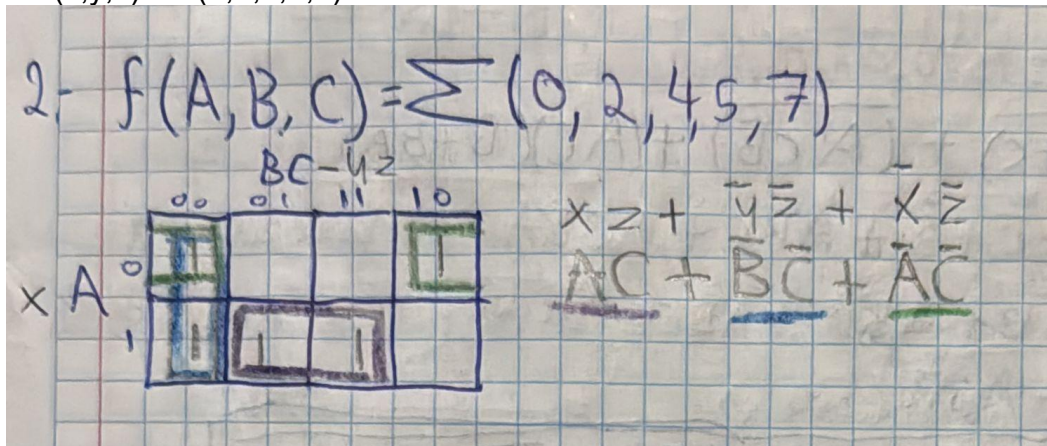 2- f(A, B, C) = Σ (0, 2, 4, 5, 7)
BC-yz
00 01 11 10
x A 0 1 1
1 1 1 1
xz + y̅z̅ + x̅z̅
AC + B̅C̅ + A̅C̅